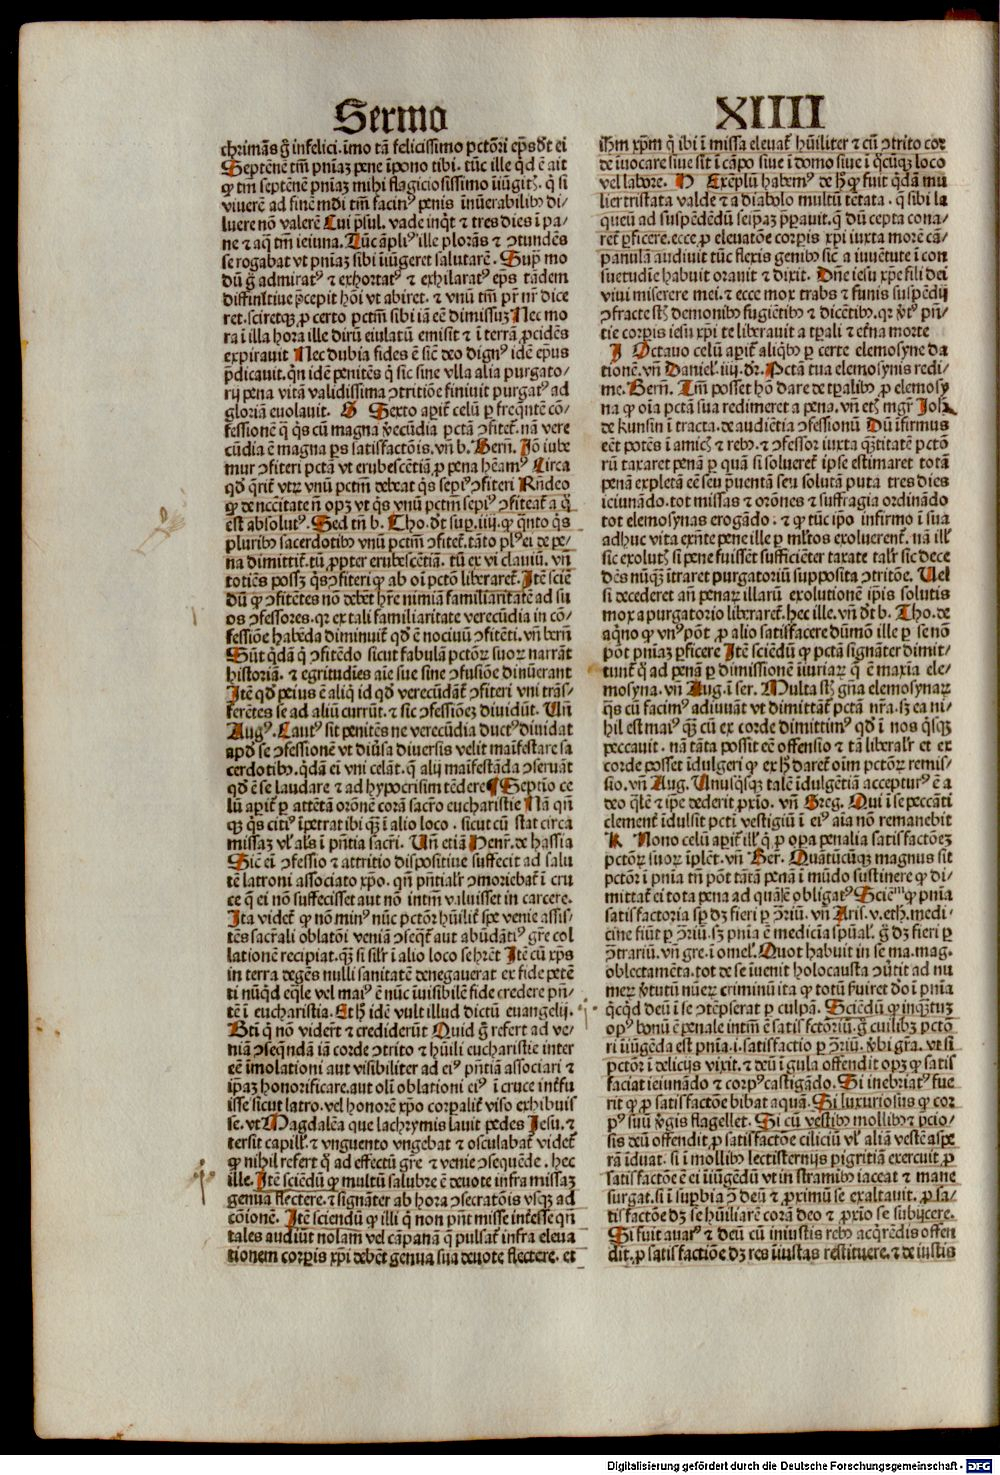 Sermo XIIII
chrimãs g̃ infelici. imo tã felicissimo pctõri ep̃s dt ei
Septẽnẽ tm̃ pniãz pene ĩpono tibi. tũc ille qd ẽ ait
ꝙ tm̃ septẽnẽ pniãz mihi flagiciosissimo iũgit. q̃ si
viuerẽ ad finẽ mdi tm̃ facinꝰ penis innũerabilibꝰ di-
luere nõ valerẽ Cui p̃sul. vade inqͥt ⁊ tres dies ĩ pa-
ne ⁊ aq̃ tm̃ ieiuna. Tũc ãpliꝰ ille plorãs ⁊ ↄtundẽs
se rogabat vt pniãz sibi iũgeret salutarẽ. Sup̃ mo
dũ g̃ admiratꝰ ⁊ exhortatꝰ ⁊ exhilaratꝰ ep̃s tãdem
diffinitiue p̃cepit hõi vt abiret. ⁊ vnũ tm̃ pr̃ nr̃ dice
ret. sciretqꝫ ꝓ certo pctm̃ sibi iã eẽ dimissuꝫ Nec mo
ra ĩ illa hora ille dirũ eiulatũ emisit ⁊ ĩ terrã ꝓcidẽs
expirauit Nec dubia fides ẽ sic̃ deo dignꝰ idẽ ep̃us
p̃dicauit. qñ idẽ penitẽs q̃ sic sine vlla alia purgato-
rij pena vitã validissima ↄtritiõe finiuit purgatꝰ ad
gloriã euolauit. G Sexto aꝑit celũ ꝑ freq̃ntẽ cõ-
fessionẽ q̃ q̃s cũ magna v̓ecũdia pctã ↄfitet. nã vere
cũdia ẽ magna ps satisfactõis. vñ b. Berñ. Jõ iube
mur ↄfiteri pctã vt erubescẽtia ꝓ pena hẽamꝰ Circa
qd q̃rit vtꝝ vnũ pctm̃ debeat q̃s sepiꝰ ↄfiteri Rñdeo
ꝙ de ncc̃itate ñ opꝫ vt q̃s vnũ pctm̃ sepiꝰ ↄfiteat a q̃
est absolutꝰ. Sed tñ b. Tho. dt sup̃. iiij. ꝙ q̃nto q̃s
pluribꝰ sacerdotibꝰ vnũ pctm̃ ↄfitet. tãto plꝰ ei de pe-
na dimittit. tũ ꝓpter erubescẽtia. tũ ex vi clauiũ. vñ
totiẽs possꝫ q̃s ↄfiteri ꝙ ab oĩ pctõ liberaret. Itẽ sciẽ
dũ ꝙ ↄfitẽtes nõ debẽt hr̃e nimiã familiaritatẽ ad su
os ↄfessores. qꝛ ex tali familiaritate verecũdia in cõ-
fessiõe habẽda diminuit qd ẽ nociuũ ↄfitẽti. vñ berñ
Sũt q̃dã q̃ ↄfitẽdo sicut fabulã pctõꝝ suoꝝ narrãt
historiã. ⁊ egritudies aĩe sue sine ↄfusiõe dinũerant
Itẽ qd peius ẽ aliq̃ id qd verecũdãt ↄfiteri vni trãs-
ferẽtes se ad aliũ currũt. ⁊ sic ↄfessiõez diuidũt. Vñ
Augꝰ. Cautꝰ sit penitẽs ne verecũdia ductꝰ diuidat
apd se ↄfessionẽ vt diũsa diuersis velit maĩfestare sa
cerdotibꝰ. q̃dã eĩ vni celãt. q̃ alij maĩfestãda ↄseruãt
qd ẽ se laudare ⁊ ad hypocrisim tẽdere ¶ Septio ce
lũ aꝑit ꝑ attẽtã orõnẽ corã sacr̃o eucharistie Nã qñ
qꝫ q̃s citiꝰ ĩpetrat ibi qꝫ ĩ alio loco. sicut cũ stat circa
missaz vl als̃ ĩ pñtia sacr̃i. Vñ etiã Henr̃. de hassia
Sic̃ eĩ ↄfessio ⁊ attritio dispositiue suffecit ad salu
tẽ latroni associato xp̃o. qñ pñtialr̃ ↄmoriebat ĩ cru
ce q̃ ei nõ suffecisset aut nõ intm̃ valuisset in carcere.
Ita videt ꝙ nõ minꝰ nũc pctõꝝ hũilit spe venie assis-
tẽs sacr̃ali oblatõi veniã ↄseq̃t aut abũdãtiꝰ gr̃e col
lationẽ recipiat. qꝫ si silr̃ ĩ alio loco se hr̃et Itẽ cũ xp̃s
in terra degẽs nulli sanitatẽ denegauerat ex fide petẽ
ti nũqd eq̃le vel maiꝰ ẽ nũc ĩuisibilẽ fide credere pñ-
tẽ ĩ eucharistia. Et h̃ idẽ vult illud dictũ euangelij.
Bti q̃ nõ vidert ⁊ crediderũt Quid g̃ refert ad ve-
niã ↄseq̃ndã iã corde ↄtrito ⁊ hũili eucharistie inter
eẽ ĩmolationi aut visibiliter ad eiꝰ pñtiã associari ⁊
ip̃az honorificare. aut oli oblationi eiꝰ ĩ cruce intfu
isse sicut latro. vel honorẽ xp̃o corꝑalit viso exhibuis
se. vt Magdalẽa que lachrymis lauit pedes Jesu. ⁊
tersit capill. ⁊ vnguento vngebat ⁊ osculabat videt
ꝙ nihil refert q̃ ad effectũ gr̃e ⁊ venie ↄsequẽde. hec
ille. Itẽ sciẽdũ ꝙ multũ salubre ẽ deuote infra missaz
genua flectere. ⁊ signãter ab hora ↄsecratõis vsqꝫ ad
cõionẽ. Itẽ sciendũ ꝙ illi q̃ non pñt misse intesse qñ
tales audiũt nolam vel cãpana q̃ pulsat infra eleua
tionem corꝑis xp̃i debẽt genua sua deuote flectere. et
ih̃m xp̃m q̃ ibi ĩ missa eleuat hũiliter ⁊ cũ ↄtrito cor
de ĩuocare siue sit ĩ cãpo siue ĩ domo siue ĩ q̃cũqꝫ loco
vel labore. H Exẽplũ habemꝰ de h̃ ꝙ fuit q̃dã mu
lier tristata valde ⁊ a diabolo multũ tẽtata. q̃ sibi la
queũ ad suspẽdẽdũ seip̃az p̃parauit. q̃ dũ cepta cona-
ret ꝑficere. ecce ꝓ eleuatõe corꝑis xp̃i iuxta morẽ cã-
panulã audiuit tũc flexis genibꝰ sic̃ a iuuẽtute ĩ con
suetudĩe habuit orauit ⁊ dixit. Dñe iesu xp̃e fili dei
viui miserere mei. ⁊ ecce mox trabs ⁊ funis suspẽdij
ↄfracte st̃ demonibꝰ fugiẽtibꝰ ⁊ dicẽtibꝰ. qꝛ v̓tꝰ pñ-
tie corꝑis iesu xp̃i te liberauit a tꝑali ⁊ etñna morte
J Octauo celũ aꝑit aliqbꝰ ꝑ certe elemosyne da
tionẽ. vñ Daniel. iiij. dr̃. Pctã tua elemosynis redi-
me. Berñ. Tm̃ posset hõ dare de tꝑalibꝰ ꝓ elemosy
na ꝙ oĩa pctã sua redimeret a pena. vñ eth mgr̃ Joh̃.
de kunsin ĩ tracta. de audiẽtia ↄfessionũ Dũ ĩfirmus
eẽt potẽs ĩ amicꝭ ⁊ rebꝰ. ⁊ ↄfessor iuxta q̃titatẽ pctõ
rũ taxaret penã ꝑ quã si solueret ip̃se estimaret totã
penã expletã eẽ seu p̃uentã seu solutã puta tres dies
ieiunãdo. tot missas ⁊ orõnes ⁊ suffragia ordinãdo
tot elemosynas erogãdo. ⁊ ꝙ tũc ip̃o infirmo ĩ sua
adhuc vita exñte pene ille ꝑ mltos exoluerent. nã ill
sic exolutꝭ si pene fuissẽt sufficiẽter taxate talr̃ sic dece
dẽs nũqꝫ ĩtraret purgatoriũ supposita ↄtritõe. Uel
si decederet añ penaꝝ illarũ exolutionẽ ip̃is solutis
mox a purgatorio liberaret. hec ille. vñ dt b. Tho. de
aq̃no ꝙ vnꝰ põt ꝓ alio satisfacere dũmõ ille ꝑ se nõ
põt pniaz ꝑficere Itẽ sciẽdũ ꝙ pctã signãter dimit-
tunt q̃ ad penã ꝑ dimissionẽ ĩiuriaꝝ q̃ ẽ maxĩa ele-
mosyna. vñ Aug. ĩ ser. Multa st̃ gñа elemosynaꝝ
q̃s cũ facimꝰ adiuuãt vt dimittãt pctã nr̃a. sꝫ ea ni-
hil est maiꝰ qꝫ cũ ex corde dimittimꝰ qd ĩ nos q̃sqꝫ
peccauit. nã tãta possit eẽ offensio ⁊ tã liberalr̃ et ex
corde posset ĩdulgeri ꝙ ex h̃ daret oĩm pctõꝝ remis-
sio. vñ Aug. Unusq̃sqꝫ talẽ ĩdulgẽtiã acceptur̃ ẽ a
deo q̃lẽ ⁊ ip̃e dederit ꝓxĩo. vñ Greg. Qui ĩ se peccãti
clement ĩdulsit pcti vestigiũ ĩ eiꝰ aĩa nõ remanebit
K Nono celũ aꝑit ill q̃ ꝓ oꝑa penalia satisfactõez
pctõꝝ suoꝝ ĩplẽt. vñ Ber. Quãtũcũqꝫ magnus sit
pctõr ĩ pnia tm̃ põt tãtã penã ĩ mũdo sustinere ꝙ di-
mittat ei tota pena ad quã ẽ obligatꝰ Sciẽᵐ ꝙ pnia
satisfactoria sp̃ dꝫ fieri ꝑ ↄ̃riũ. vñ Aris. v. eth. medi-
cine fiũt ꝑ ↄ̃riũ. sꝫ pnia ẽ medicia spũal. g̃ dꝫ fieri ꝑ
ↄ̃trariũ. vñ gre. ĩ omel. Quot habuit in se ma. mag.
oblectamẽta. tot de se ĩuenit holocausta ↄũtit ad nu
meꝝ v̓tutũ nũeꝝ criminũ ita ꝙ totũ fuiret dõ ĩ pnia
q̃cqd deũ ĩ se ↄtẽpserat ꝑ culpã. Sciẽdũ ꝙ inq̃tuꝫ
opꝰ bonũ ẽ penale intm̃ ẽ satisfctõriũ. g̃ cuilibꝫ pctõ
ri iũgẽda est pnia. i. satisfactio ꝑ ↄ̃riũ. v̓bi gr̃a. vt si
pctõr ĩ delicijs vixit. ⁊ deũ ĩ gula offendit opꝫ ꝙ satis
faciat ieiunãdo ⁊ corpꝰ castigãdo. Si inebriatꝰ fue
rit ꝙ ꝓ satisfactõe bibat aquã. Si luxuriosus ꝙ cor
pꝰ suũ v̓gis flagellet. Si cũ vestibꝰ mollibꝰ ⁊ p̃cio-
sis deũ offendit ꝓ satisfactõe ciliciũ vl aliã vestẽ aspe
rã ĩduat. si ĩ mollibꝰ lectisternijs pigritiã exercuit ꝓ
satisfactõe ẽ ei iũgẽdũ vt in straminibꝰ iaceat ⁊ mane
surgat. si ĩ suꝑbia ↄ̃ deũ ⁊ ꝓximũ se exaltauit. ꝓ sa-
tisfactõe dꝫ se hũiliarẽ corã deo ⁊ ꝓxĩo se subijcere.
Si fuit auarꝰ ⁊ deũ cũ iniustis rebꝰ acq̃rẽdis offen
dit. ꝓ satisfactiõe dꝫ res ĩiustas restituere. ⁊ de iustis
Digitalisierung gefördert durch die Deutsche Forschungsgemeinschaft - DFG